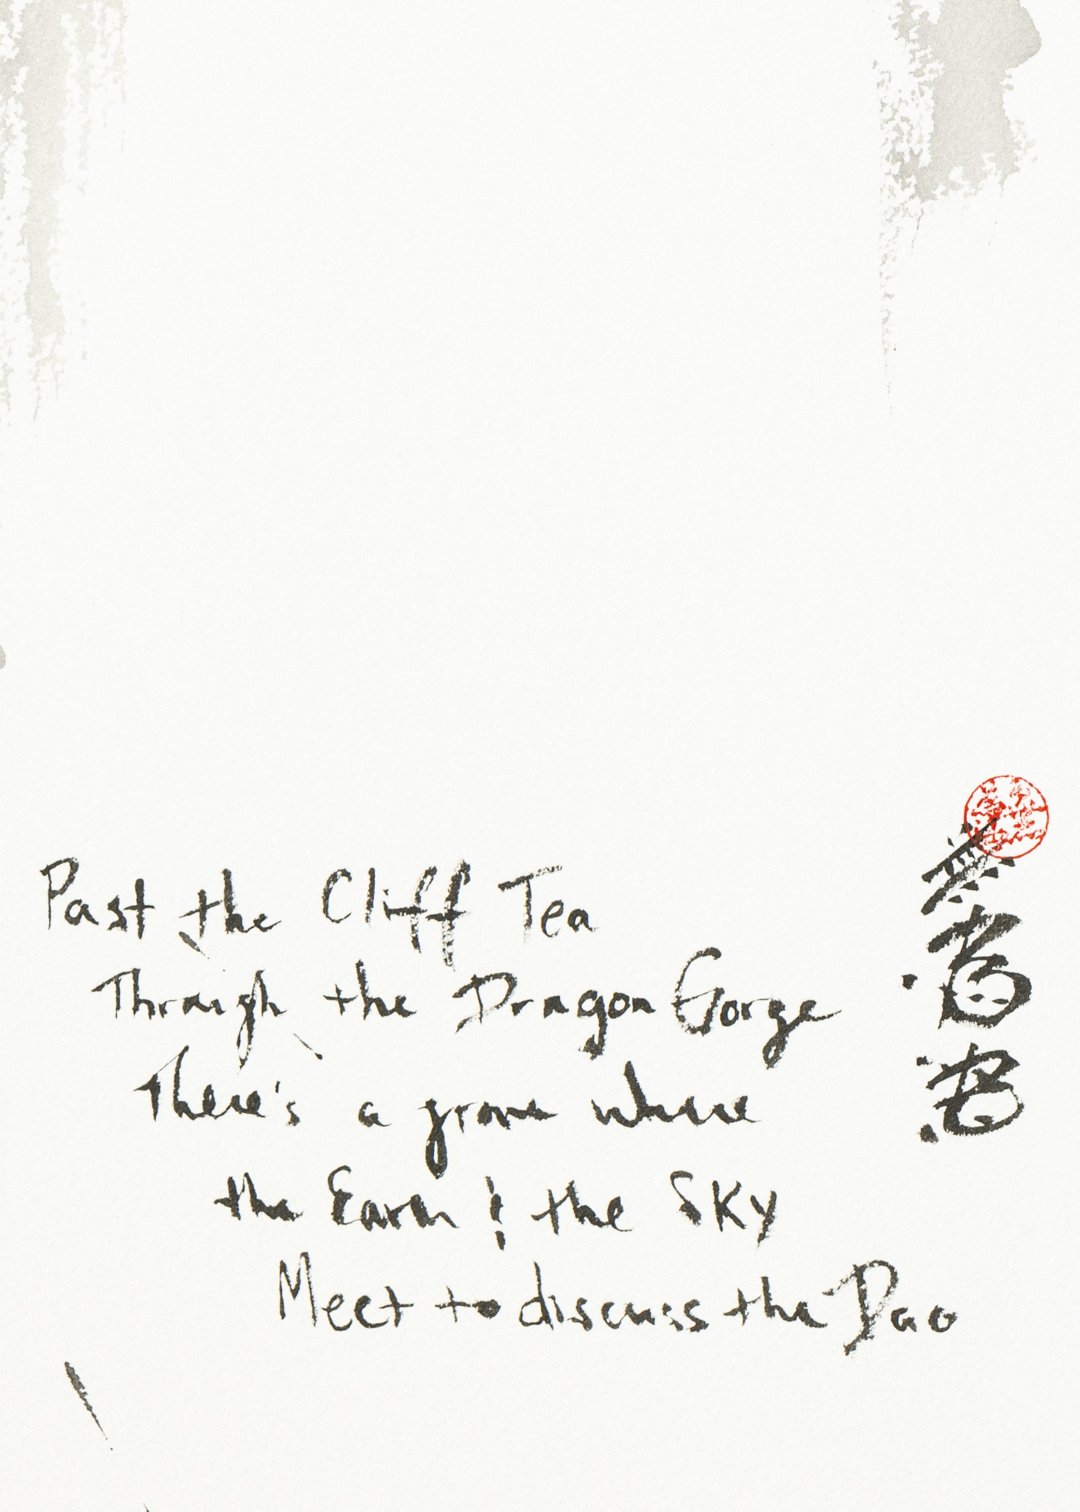 Past the Cliff Tea
Through the Dragon Gorge
There's a grove where
the Earth & the Sky
Meet to discuss the Dao